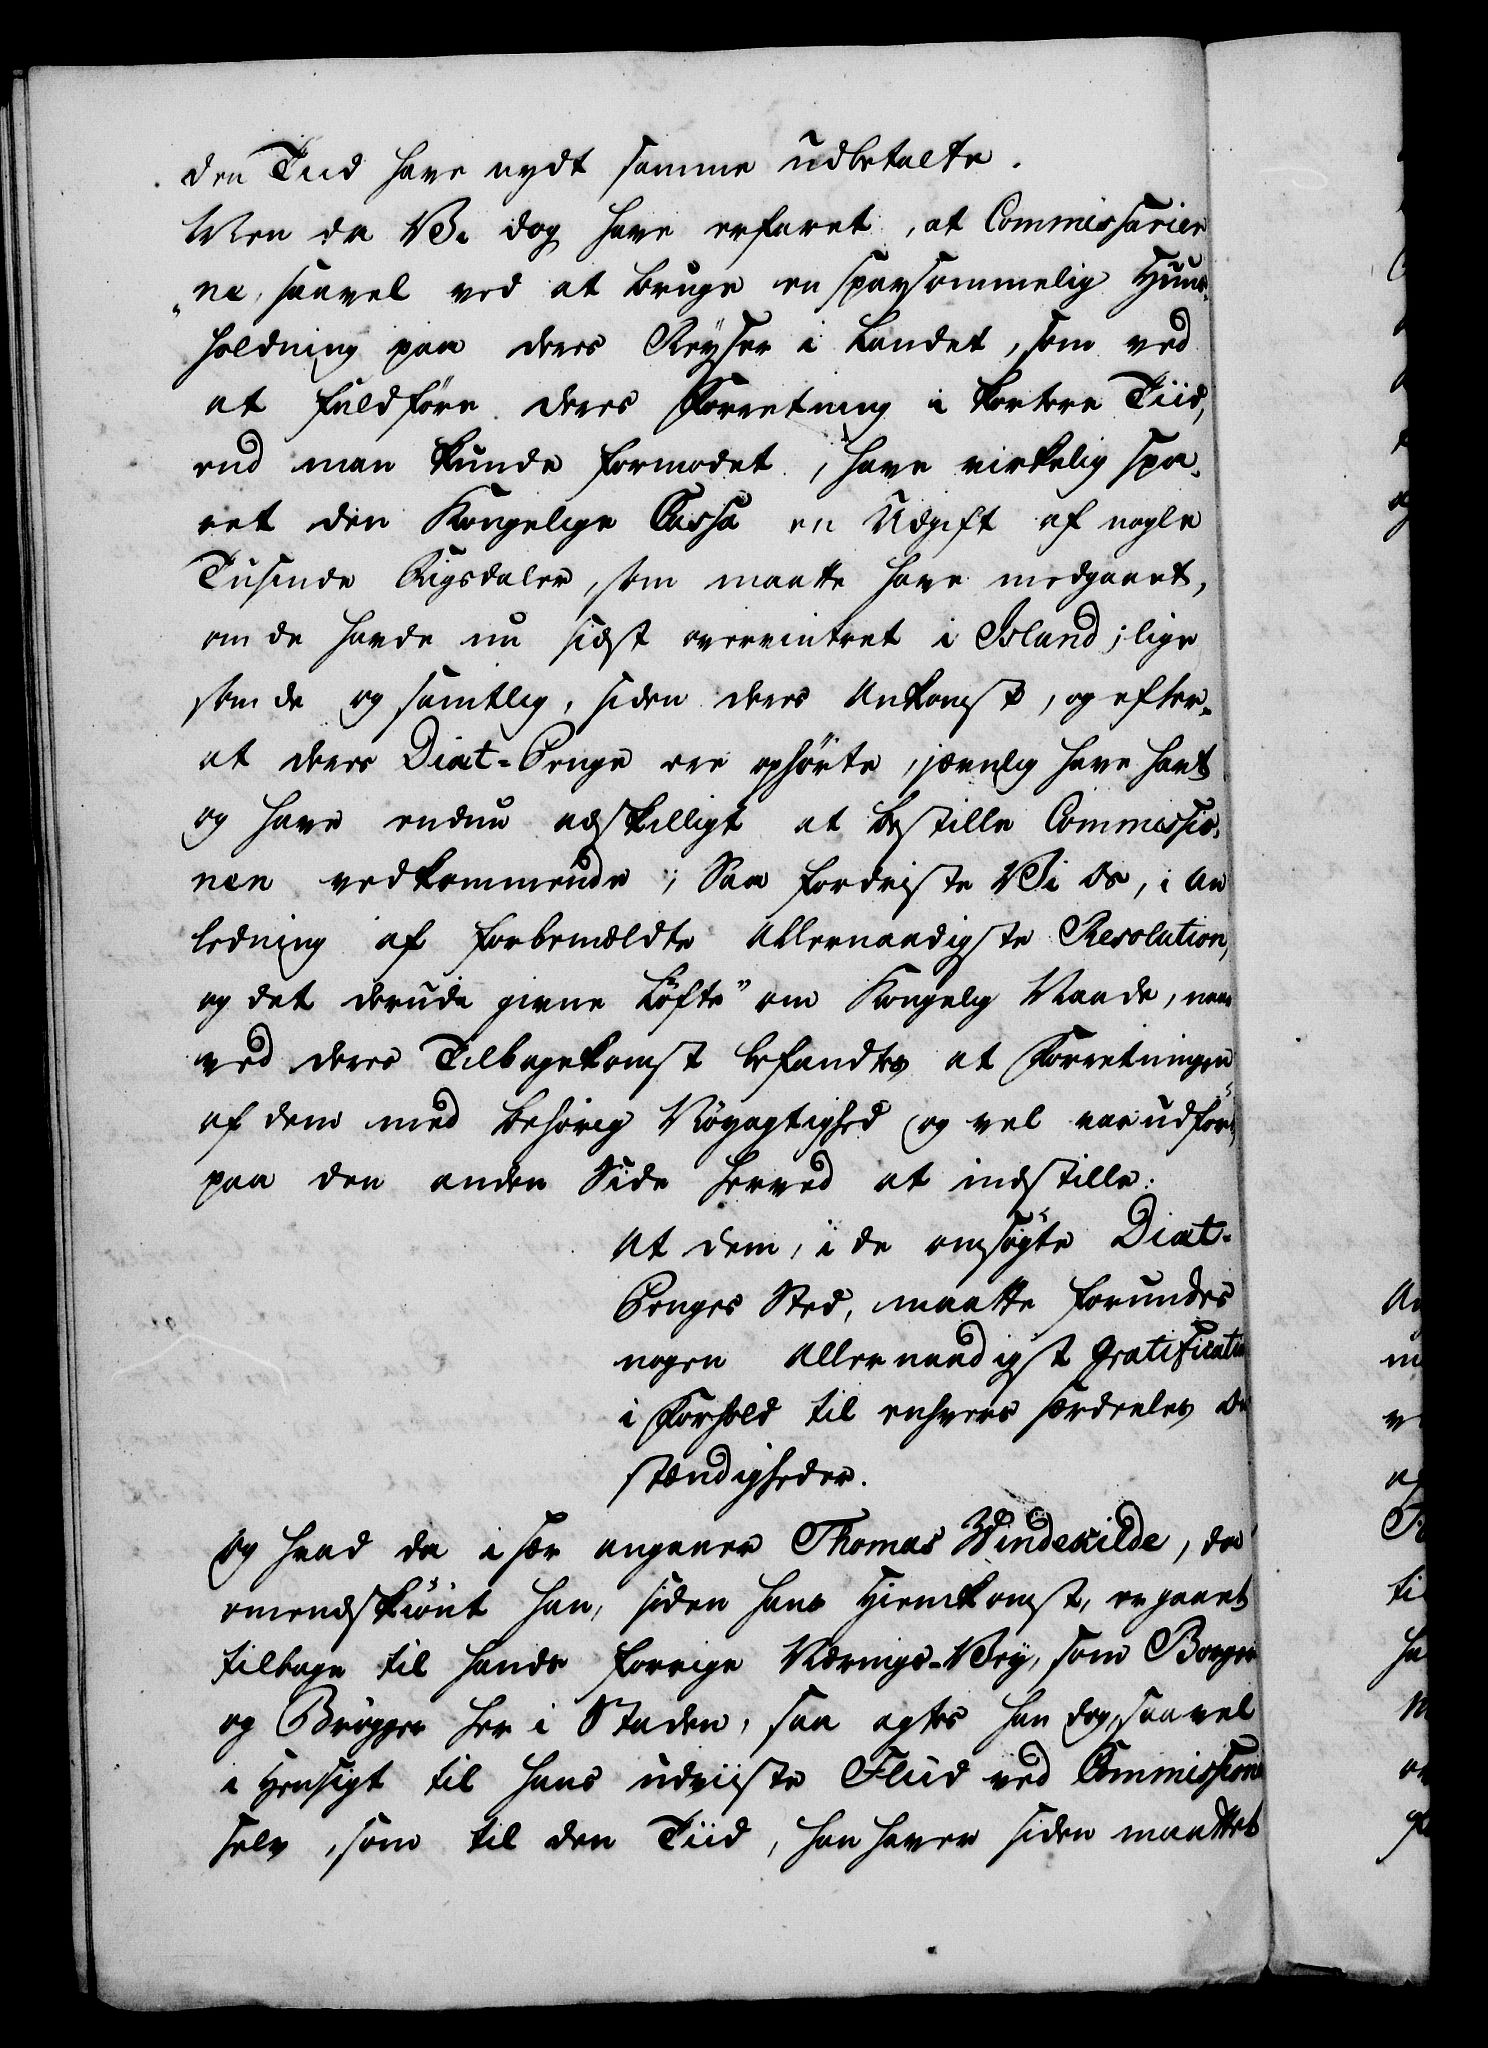 den Tiid have nydt samme udbetalte.
Men da Vi dog have erfaret, at Commissarier
ne, saavel ved at bruge en sparsommelig Huus-
holdning paa deres Reyser i Landet, som ved
at fuldföre deres Forretning i kortere Tiid,
end man kunde formodet, have virkelig spa-
ret den Kongelige Cassa en Udgift af nogle
Tusinde Rigsdaler, som maatte have medgaaet,
om de havde nu sidst overvintret i Island; lige
som de og samtlig, siden deres Ankomst, og efter-
at deres Diæt-Penge ere ophörte, jævnlig have havt
og have endnu adskilligt at bestille Commissio-
nen vedkommende; Saa fordriste Vi os, i An
ledning af forbemeldte Allernaadigste Resolution,
og det derudi givne Löfte" om Kongelig Naade, naar
ved deres Tilbagekomst befandtes at Forretningen
af dem med behörig Nöyagtighed og vel var udfört"
paa den anden Side herved at indstille:
At dem, i de ansögte Diæt-
Penges Sted, maatte forundes
nogen Allernaadigst Gratification
i Forhold til enhvers særdeeles Om
stændigheder.
Og hvad da i sær angaaer Thomas Windekilde, da
omendskiönt han, siden hans Hiemkomst, er gaaet
tilbage til hands forrige Nærings-Vey, som Borger
og Brögger her i Staden, saa agtes han dog, saavel
i Hensigt til hans udviiste Fliid ved Commissionen
selv, som til den Tiid, han haver siden maattet